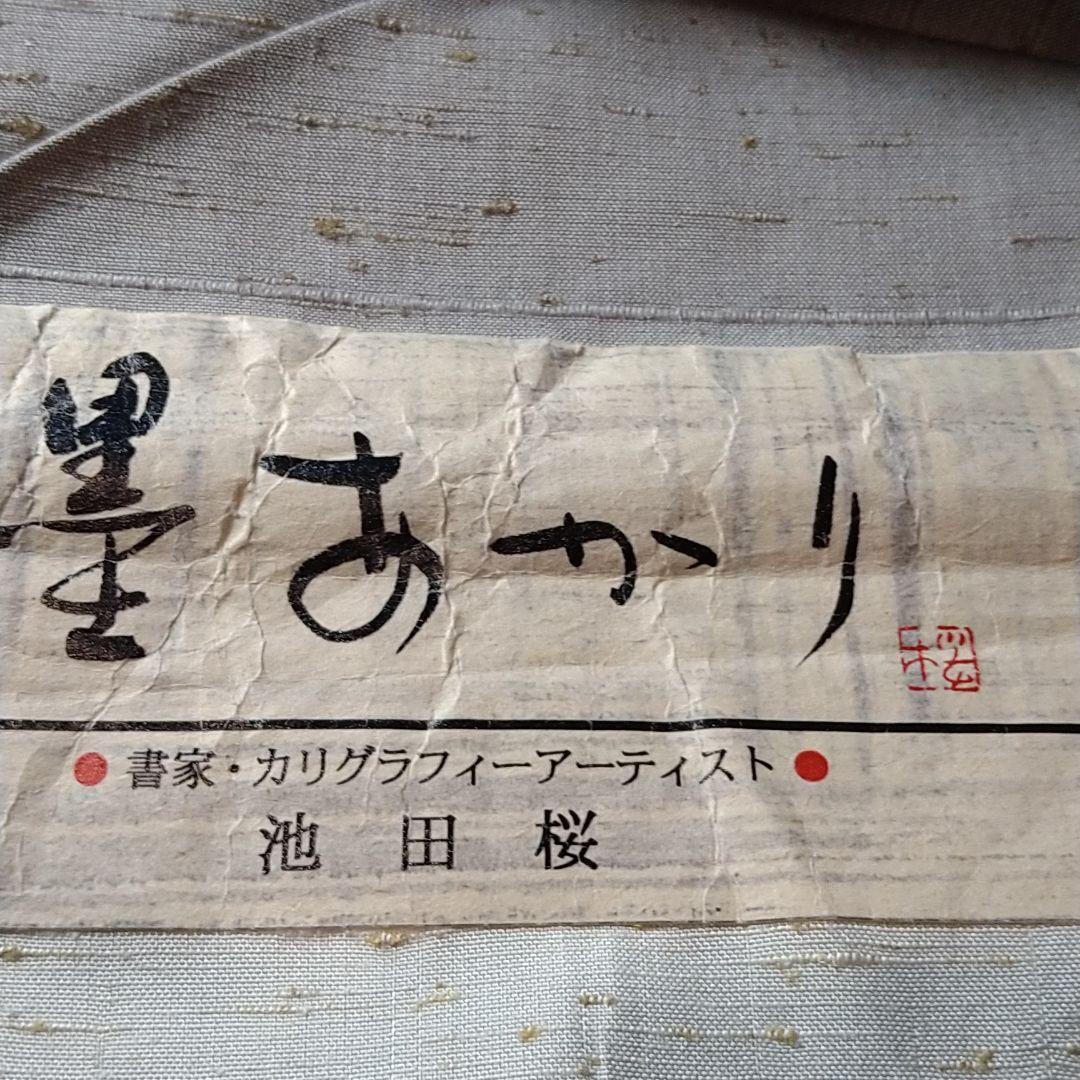 墨あかり
桜
● 書家・カリグラフィーアーティスト ●
池田桜